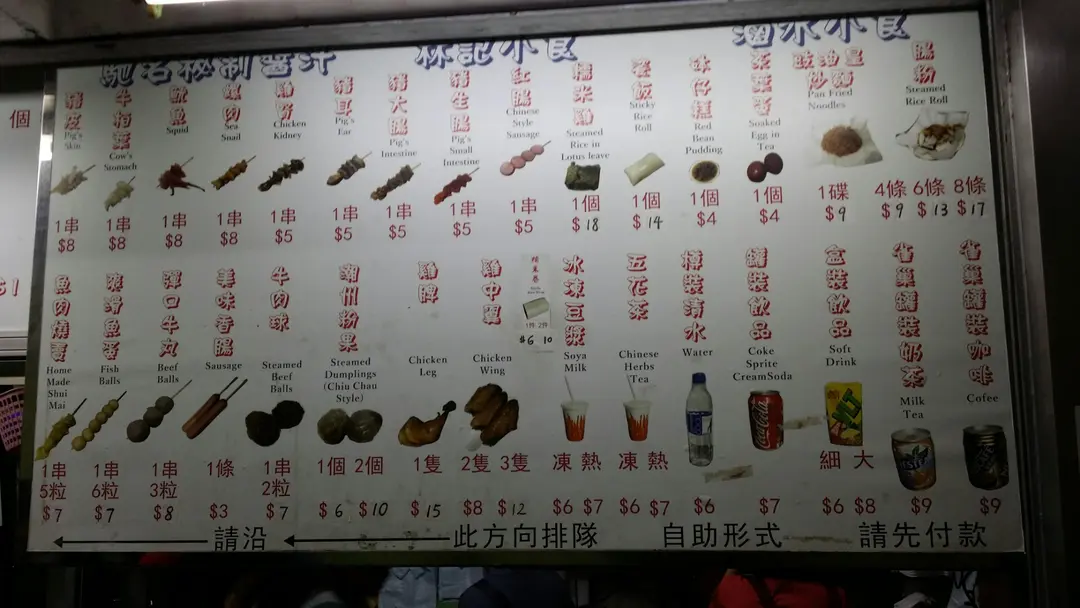 馳名秘制醬汁 林記小食 滷水小食
豬皮
Pig's
Skin
1串
$8
牛栢葉
Cow's
Stomach
1串
$8
魷魚
Squid
1串
$8
螺肉
Sea
Snail
1串
$8
雞腎
Chicken
Kidney
1串
$5
豬耳
Pig's
Ear
1串
$5
豬大腸
Pig's
Intestine
1串
$5
豬生腸
Pig's
Small
Intestine
1串
$5
紅腸
Chinese
Style
Sausage
1串
$5
糯米雞
Steamed
Rice in
Lotus leave
1個
$18
瓷飯
Sticky
Rice
Roll
1個
$14
砵仔糕
Red
Bean
Pudding
1個
$4
茶葉蛋
Soaked
Egg in
Tea
1個
$4
豉油皇
炒麵
Pan Fried
Noodles
1碟
$9
腸粉
Steamed
Rice Roll
4條 6條 8條
$9 $13 $17
魚肉燒賣
Home
Made
Shui
Mai
1串
5粒
$7
珠滑魚蛋
Fish
Balls
1串
6粒
$7
彈口牛丸
Beef
Balls
1串
3粒
$8
美味香腸
Sausage
1條
$3
牛肉球
Steamed
Beef
Balls
1串
2粒
$7
潮州粉果
Steamed
Dumplings
(Chiu Chau
Style)
1個 2個
$6 $10
雞脾
Chicken
Leg
1隻
$15
雞中翼
Chicken
Wing
2隻 3隻
$8 $12
1件 2件
$6 10
冰凍豆漿
Soya
Milk
凍 熱
$6 $7
五花茶
Chinese
Herbs
Tea
凍 熱
$6 $7
樽裝清水
Water
$6
罐裝飲品
Coke
Sprite
CreamSoda
$7
盒裝飲品
Soft
Drink
細 大
$6 $8
雀巢罐裝奶茶
Milk
Tea
$9
雀巢罐裝咖啡
Cofee
$9
請沿 此方向排隊 自助形式 請先付款
個